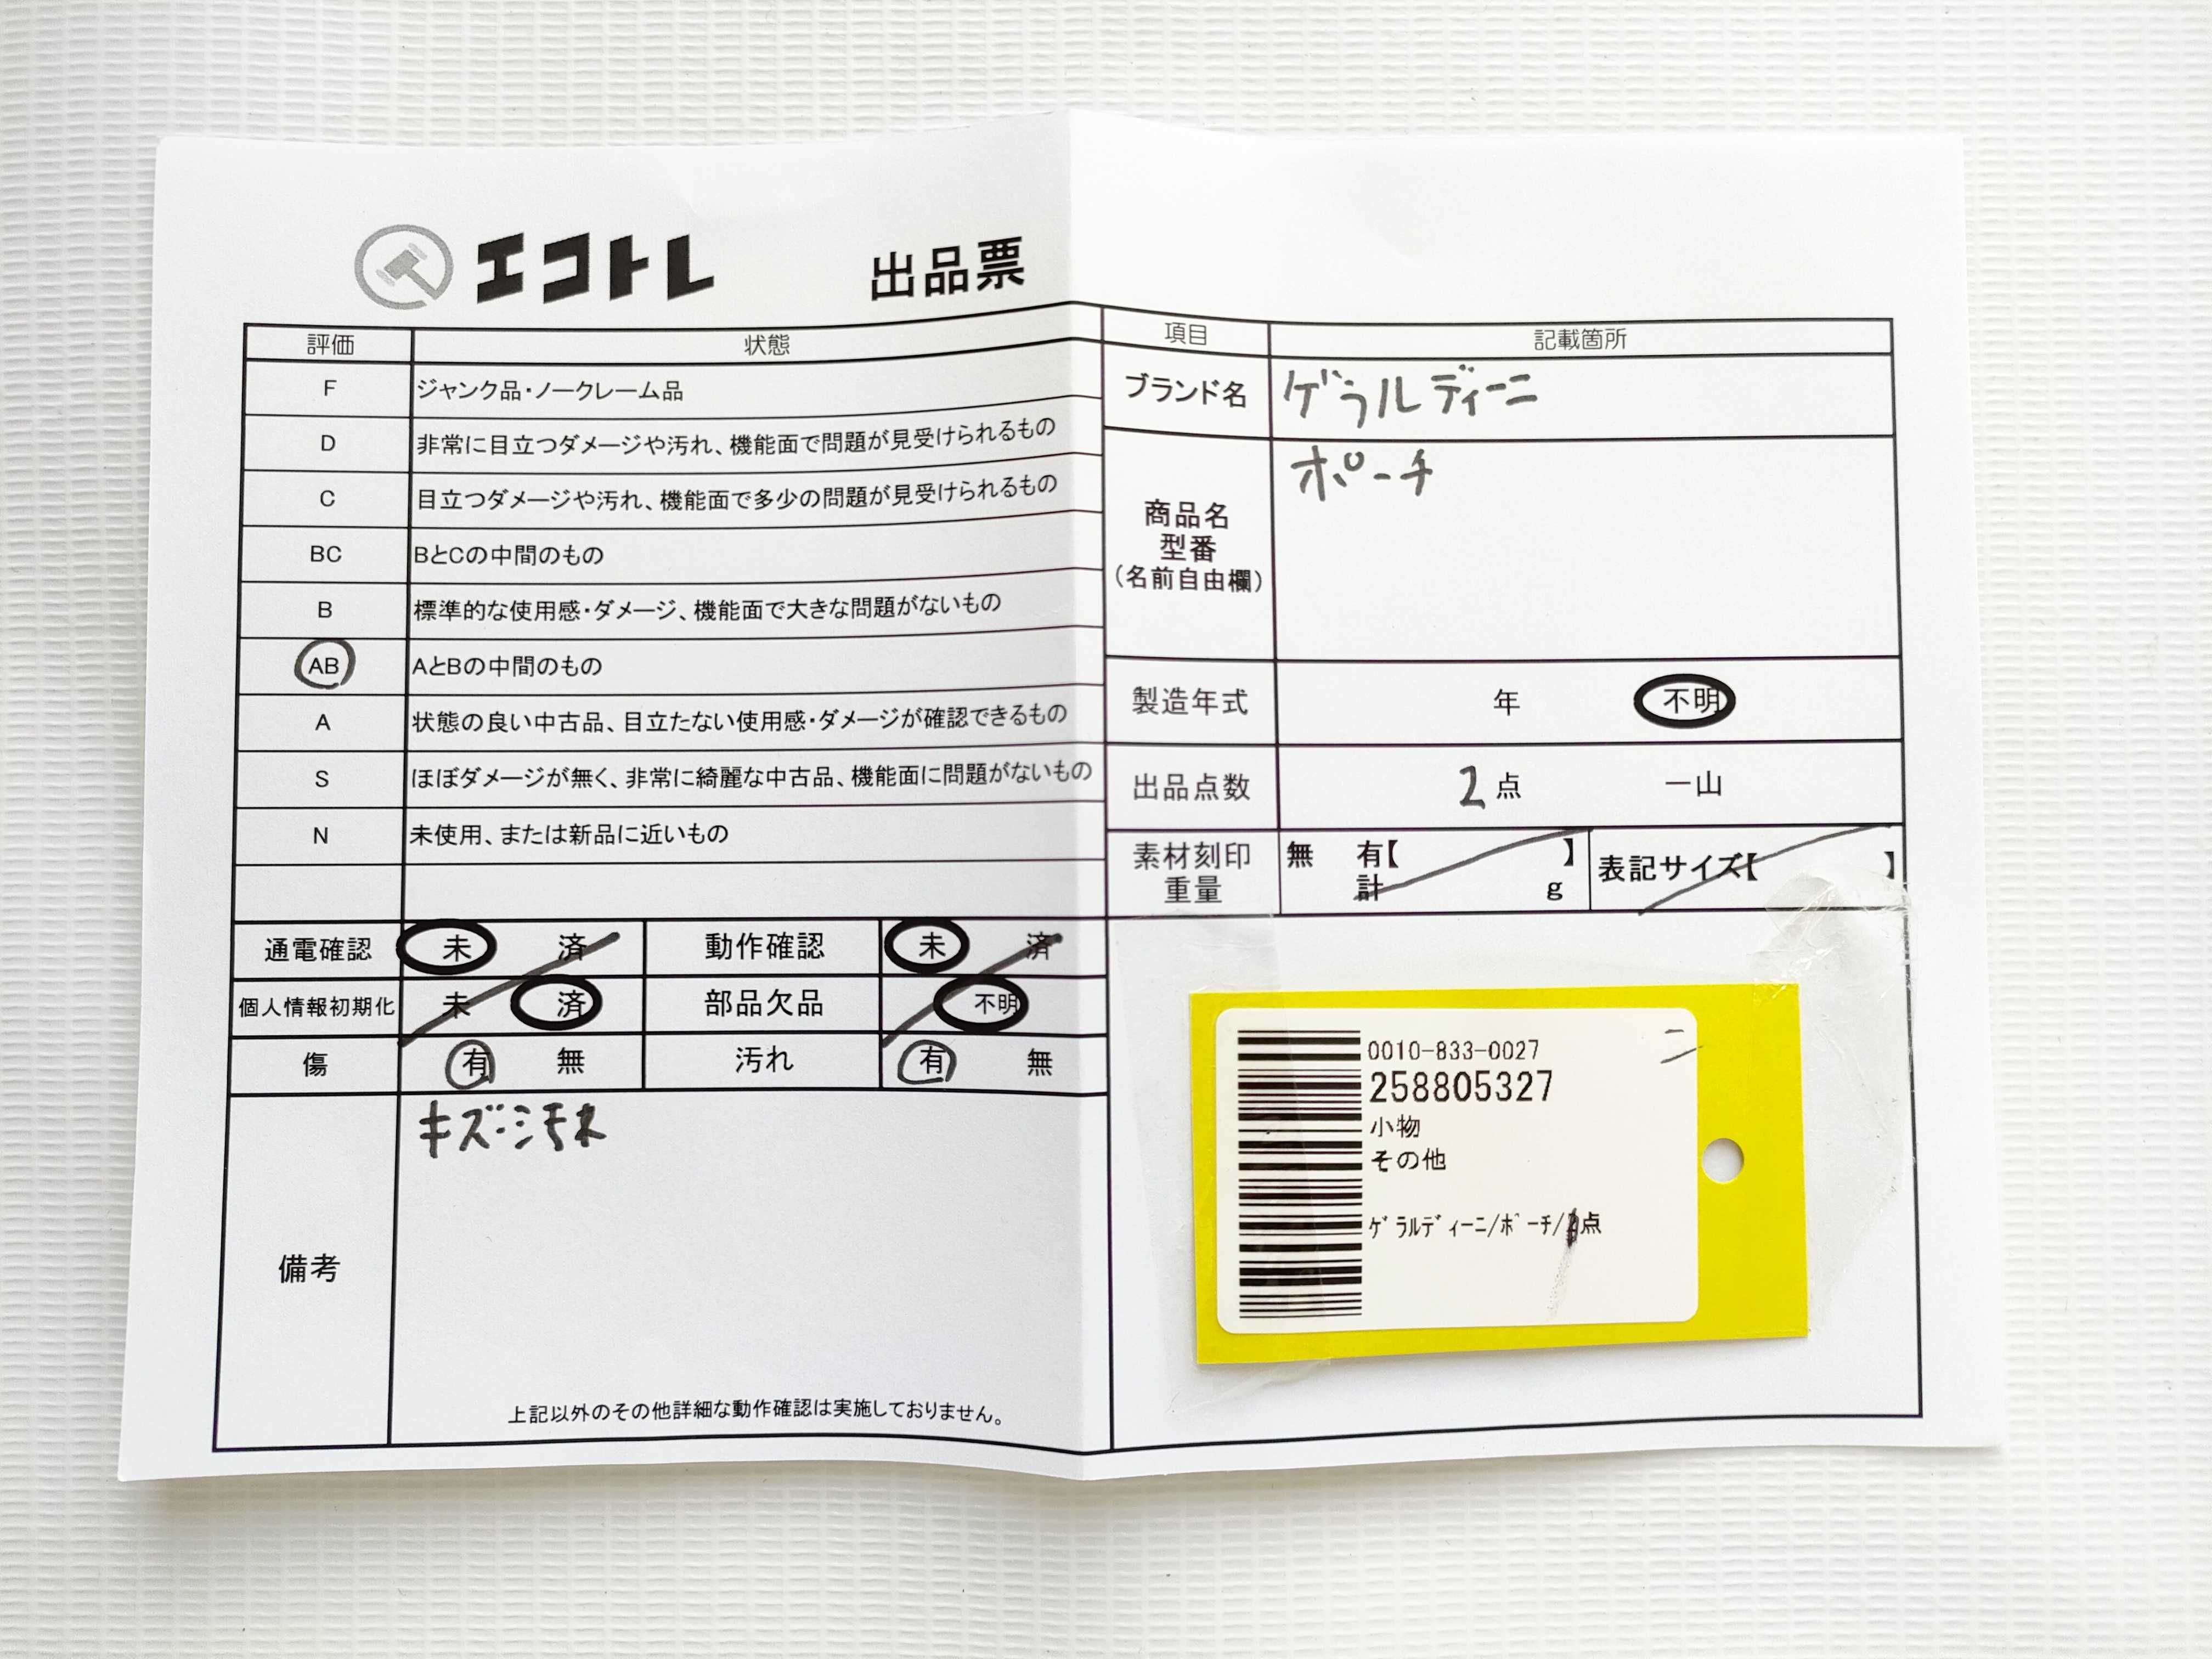 エコトレ 出品票
評価 状態
F ジャンク品・ノークレーム品
D 非常に目立つダメージや汚れ、機能面で問題が見受けられるもの
C 目立つダメージや汚れ、機能面で多少の問題が見受けられるもの
BC BとCの中間のもの
B 標準的な使用感・ダメージ、機能面で大きな問題がないもの
AB AとBの中間のもの
A 状態の良い中古品、目立たない使用感・ダメージが確認できるもの
S ほぼダメージが無く、非常に綺麗な中古品、機能面に問題がないもの
N 未使用、または新品に近いもの
通電確認 未 済 動作確認 未 済
個人情報初期化 未 済 部品欠品 不明
傷 有 無 汚れ 有 無
備考
キズ・汚れ
上記以外のその他詳細な動作確認は実施しておりません。
項目 記載箇所
ブランド名 ゲラルディーニ
商品名
型番
(名前自由欄)
ポーチ
製造年式 年 不明
出品点数 2点 一山
素材刻印
重量
無 有【 】
計 g
表記サイズ【 】
0010-833-0027
258805327
小物
その他
ゲラルディーニ/ポーチ/ 点